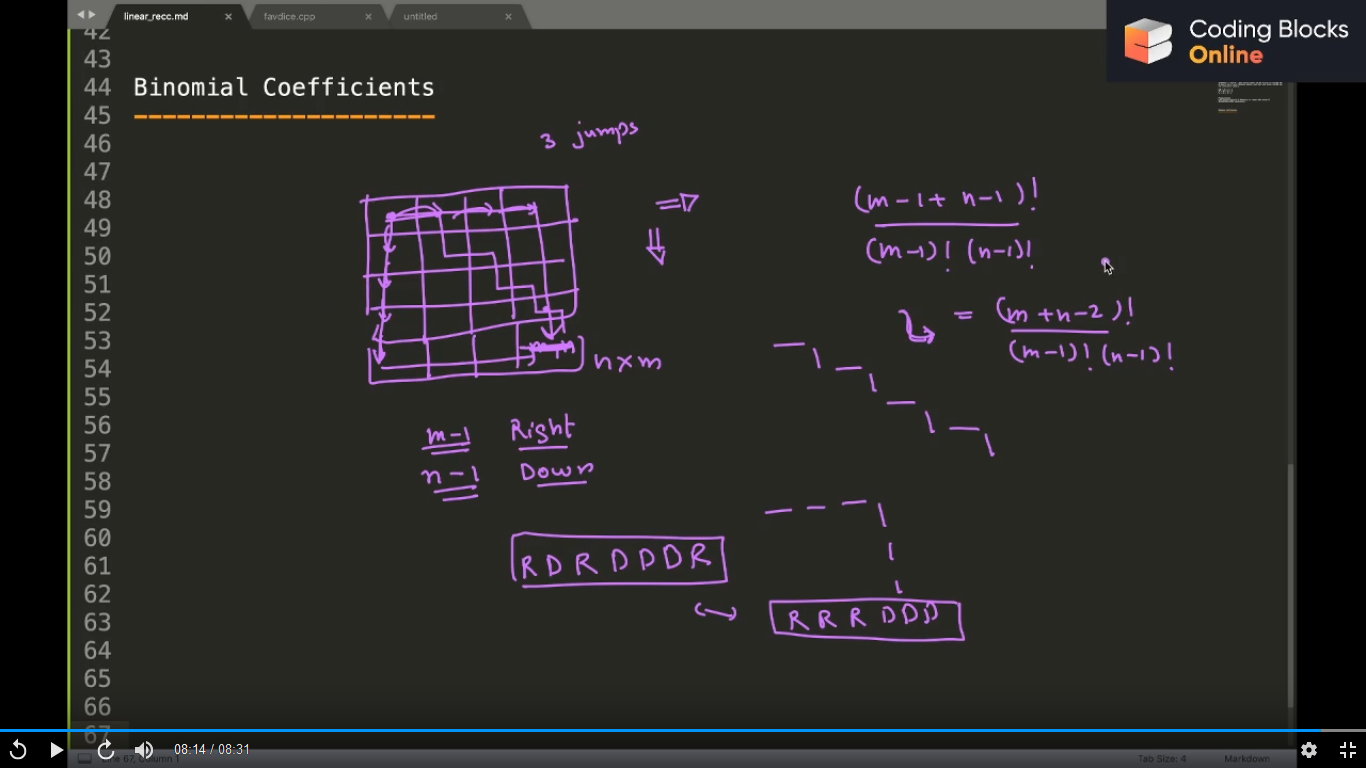 linear_recc.md × favdice.cpp × untitled ×
Coding Blocks
Online
42
43
44 Binomial Coefficients
45 ---------------------
46
47
48
49
50
51
52
53
54
55
56
57
58
59
60
61
62
63
64
65
66
67
3 jumps
n×m
m-1 Right
n-1 Down
(m-1+n-1)!
(m-1)! (n-1)!
= (m+n-2)!
(m-1)! (n-1)!
RDRDDDR
RRRDDD
08:14 / 08:31
Line 67, Column 1
Tab Size: 4 Markdown